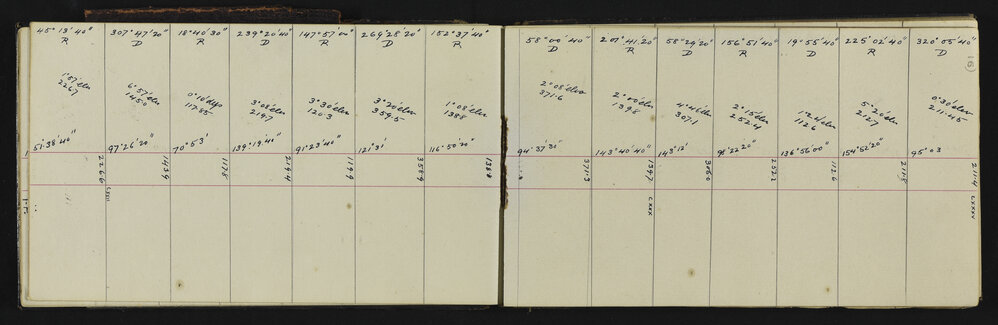 45° 13' 40"
R
1°57' elev
226.7
51.38'.40"
226.6
307° 47' 20"
D
6°57' elev
145.0
97°26'.20"
143.9
CXXV
18° 40' 30"
R
0°10' dep
117.85
70° 53'
117.8
239° 20' 40"
D
3°08' elev
219.7
139°.19'.40"
219.4
147° 57' 00"
R
3°30' elev
120.3
91°.23'.40"
119.9
269° 28' 20"
D
3°20' elev
359.5
121° 31'
358.9
152° 37' 40"
R
1°08' elev
138.8
116°.50'.20"
138.8
58° 00' 40"
D
2°08' elev
371.6
94° 37' 31'
371.3
207° 41' 20"
R
2°00' elev
139.8
143° 40' 40"
139.7
CXXX
58° 29' 20"
D
4°46' elev
307.1
143° 12'
306.0
156° 51' 40"
R
2°15' elev
252.4
98° 22' 20"
252.2
19° 55' 40"
D
1°24' elev
112.6
136° 56' 00"
112.6
225° 02' 40"
R
5°20' elev
212.7
154° 52' 20"
211.8
320° 05' 40"
D
0°30' elev
211.45
95° 03
211.4
CXXXV
16)